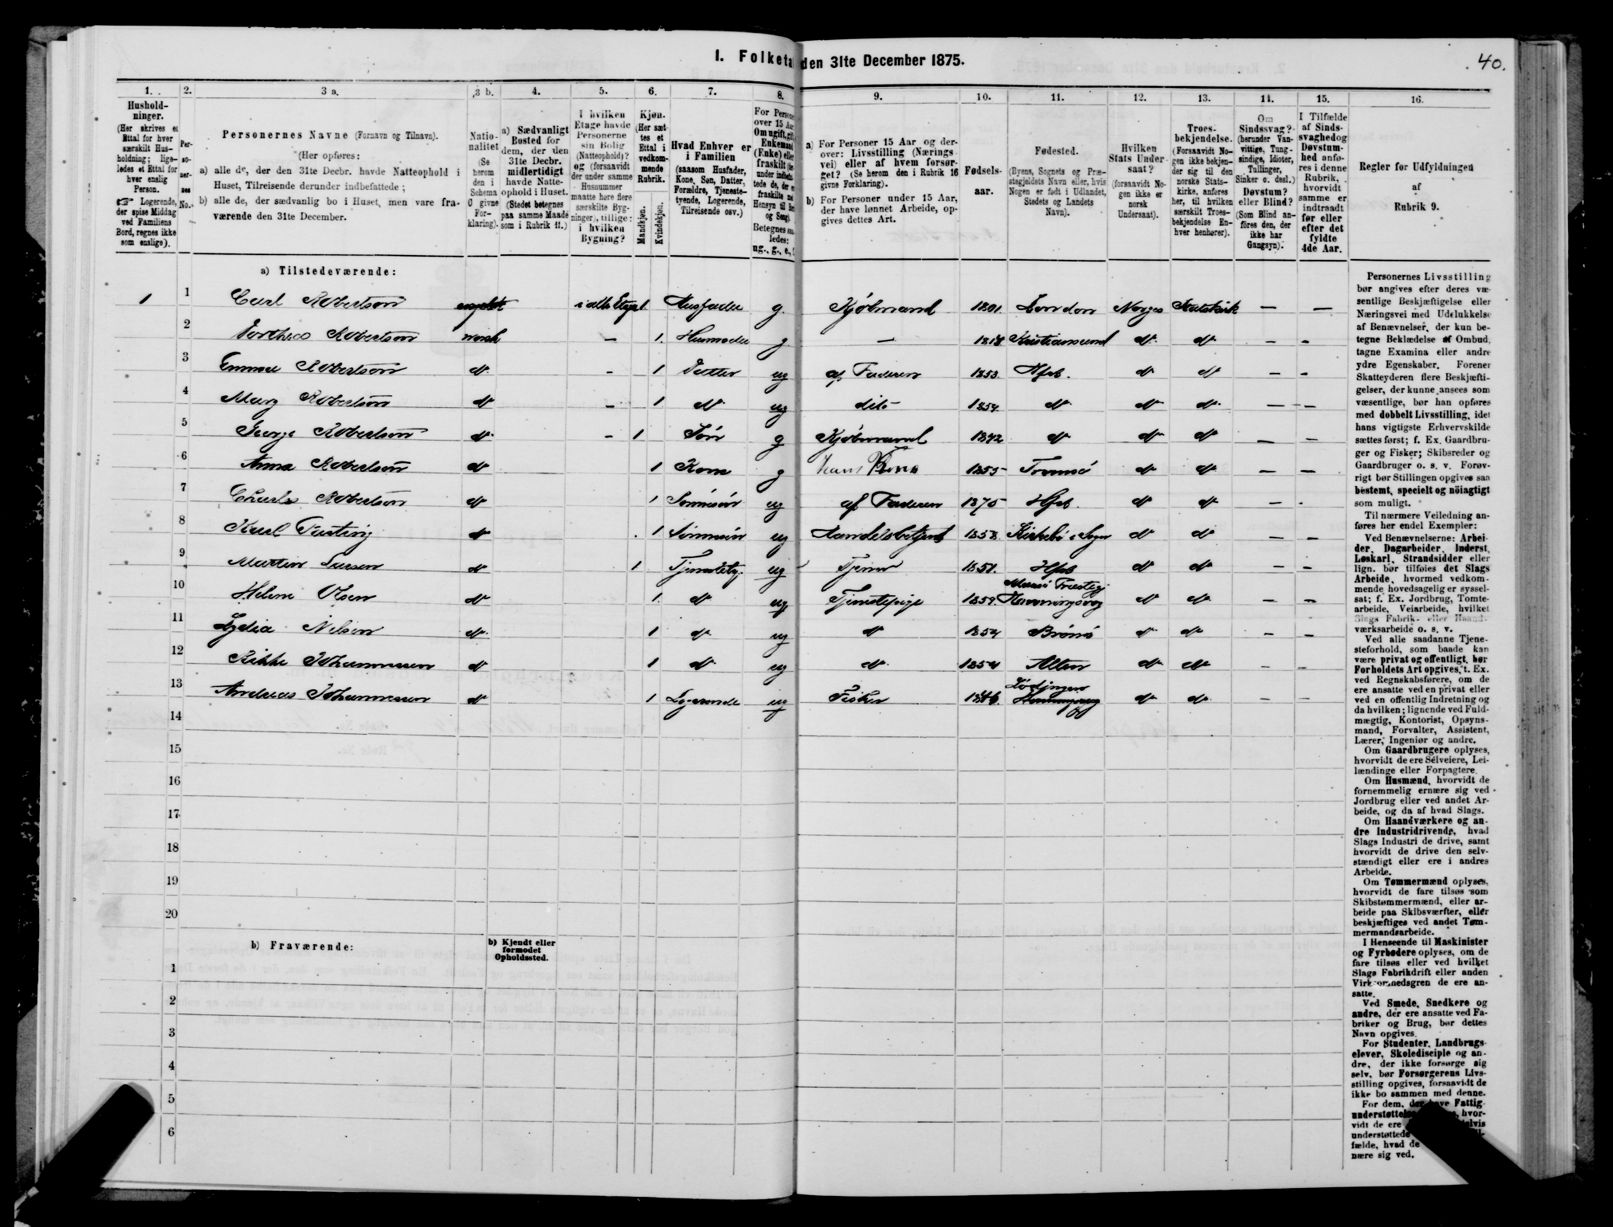 I. Folketa den 31te December 1875.
40.
1. 2. 3 a. 3 b. 4. 5. 6. 7. 8. 9. 10. 11. 12. 13. 14. 15. 16.
Hushold-
ninger.
(Her skrives et
Ettal for hver
særskilt Hus-
holdning; lige-
ledes et Ettal for
hver enslig
Person.
☞ Logerende,
der spise Middag
ved Familiens
Bord, regnes ikke
som enslige).
Per-
so-
ner-
nes
No.
Personernes Navne (Fornavn og Tilnavn).
(Her opføres:
a) alle de, der den 31te Decbr. havde Natteophold i
Huset, Tilreisende derunder indbefattede;
b) alle de, der sædvanlig bo i Huset, men vare fra-
værende den 31te December.
Natio-
nalitet
(Se
herom
den i
Schema
O givne
For-
klaring).
a) Sædvanligt
Bosted for
dem, der den
31te Decbr.
midlertidigt
havde Natte-
ophold i Huset.
(Stedet betegnes
paa samme Maade
som i Rubrik 11.)
I hvilken
Etage havde
Personerne
sin Bolig
(Natteophold)?
og (forsaavidt
der under samme
Husnummer
maatte høre flere
særskilte Byg-
ninger), tillige:
i hvilken
Bygning?
Kjøn.
(Her sæt-
tes et
Ettal i
vedkom-
mende
Rubrik.
Mandkjøn.
Kvindekjøn.
Hvad Enhver er
i Familien
(saasom Husfader,
Kone, Søn, Datter,
Forældre, Tjeneste-
tyende, Logerende,
Tilreisende osv.)
For Perso
over 15 Aa
Om ugift, gift,
Enkemand
(Enke) elle
fraskilt
Betegnes
ledes:
ug., g., e.,
a) For Personer 15 Aar og der-
over: Livsstilling (Nærings-
vei) eller af hvem forsør-
get? (Se herom den i Rubrik 16
givne Forklaring).
b) For Personer under 15 Aar,
der have lønnet Arbeide, op-
gives dettes Art.
Fødsels-
aar.
Fødested.
(Byens, Sognets og Præ-
stegjeldets Navn eller, hvis
Nogen er født i Udlandet,
Stedets og Landets
Navn).
Hvilken
Stats Under-
saat?
(forsaavidt No-
gen ikke er
norsk
Undersaat).
Troes-
bekjendelse.
(Forsaavidt No-
gen ikke bekjen-
der sig til den
norske Stats-
kirke, anføres
her, til hvilken
særskilt Troes-
bekjendelse En-
hver henhører).
Om
Sindssvag?
(herunder Van-
vittige, Tung-
sindige, Idioter,
Tullinger,
Sinker o. desl.)
Døvstum?
eller Blind?
(Som Blind an-
føres den, der
ikke har
Gangsyn).
I Tilfælde
af Sinds-
svaghedog
Døvstum-
hed anfø-
res i denne
Rubrik,
hvorvidt
samme er
indtraadt
før eller
efter det
fyldte
4de Aar.
Regler for Udfyldningen
af
Rubrik 9.
a) Tilstedeværende:
1 1 Carl Robertson engelsk i alle Etage 1 Husfader g. Kjøbmand 1801. London Norges Statskirk — —
2 Dorthea Robertson norsk — 1. Husmoder g — 1818 Kristiansund do do – –
3 Emma Robertson do – 1 Datter ug af Faderen 1853 Hfst. do do – –
4 Mary Robertson do – 1 do ug dito 1854 do do do – –
5 George Robertson do – 1 Søn g Kjøbmand 1842 do do do – –
6 Anna Robertson do 1 Kone g Hans Kone 1853 Tromsø do do – –
7 Charles Robertson do 1 Sønnesøn ug af Faderen 1875 Hfst. do do – –
8 Karl do 1 Sønnesøn ug Handelsbetjent 1853 Kirkebø i Sogn do do – –
9 Martin Larsen do 1 Tjenestety. ug Tjener 1851. Hfst do do – –
10 Helene Olsen do 1 do ug Tjenestepige 1859. Honningsvog do do – –
11 Lydia Nilsen do 1 do ug do 1854 Brønø do do – –
12 Rikke Johannessen do 1 do ug do 1854 Alten do do – –
13 Andreas Johannessen do 1 Logerende ug Fisker 1846 Lødingen do do – –
14
15
16
17
18
19
20
b) Fraværende:
b) Kjendt eller
formodet
Opholdssted.
1
2
3
4
5
6
Personernes Livsstilling
bør angives efter deres væ-
sentlige Beskjæftigelse eller
Næringsvei med Udelukkelse
af Benævnelser, der kun be-
tegne Beklædelse af Ombud,
tagne Examina eller andre
ydre Egenskaber. Forener
Skatteyderen flere Beskjæfti-
gelser, der kunne ansees som
væsentlige, bør han opføres
med dobbelt Livsstilling, idet
hans vigtigste Erhvervskilde
sættes først; f. Ex. Gaardbru-
ger og Fisker; Skibsreder og
Gaardbruger o. s. v. Forøv-
rigt bør Stillingen opgives saa
bestemt, specielt og nöiagtigt
som muligt.
Til nærmere Veiledning an-
føres her endel Exempler:
Ved Benævnelserne: Arbei-
der, Dagarbeider, Inderst,
Løskarl, Strandsidder eller
lign. bør tilføies det Slags
Arbeide, hvormed vedkom-
mende hovedsagelig er syssel-
sat; f. Ex. Jordbrug, Tomte-
arbeide, Veiarbeide, hvilket
Slags Fabrik- eller Haand-
værksarbeide o. s. v.
Ved alle saadanne Tjene-
steforhold, som baade kan
være privat og offentligt, bør
Forholdets Art opgives, f. Ex.
ved Regnskabsførere, om de
ere ansatte ved en privat eller
ved en offentlig Indretning og
da hvilken; lignende ved Fuld-
mægtig, Kontorist, Opsyns-
mand, Forvalter, Assistent,
Lærer, Ingeniør og andre.
Om Gaardbrugere oplyses,
hvorvidt de ere Selveiere, Lei-
lændinge eller Forpagtere.
Om Husmænd, hvorvidt de
fornemmelig ernære sig ved
Jordbrug eller ved andet Ar-
beide, og da af hvad Slags.
Om Haandværkere og an-
dre Industridrivende, hvad
Slags Industri de drive, samt
hvorvidt de drive den selv-
stændigt eller ere i andres
Arbeide.
Om Tømmermænd oplyses,
hvorvidt de fare tilsøs som
Skibstømmermænd, eller ar-
beide paa Skibsværfter, eller
beskjæftiges ved andet Tøm-
mermandsarbeide.
I Henseende til Maskinister
og Fyrbødere oplyses, om de
fare tilsøs eller ved hvilket
Slags Fabrikdrift eller anden
Virksomhedsgren de ere an-
satte.
Ved Smede, Snedkere og
andre, der ere ansatte ved Fa-
briker og Brug, bør dettes
Navn opgives.
For Studenter, Landbrugs-
elever, Skoledisciple og an-
dre, der ikke forsørge sig
selv, bør Forsørgerens Livs-
stilling opgives, forsaavidt de
ikke bo sammen med denne.
For dem, der have Fattig-
understøttelse hvor-
vidt de ere
understøttede
fælde, hvad de
nære sig ved.